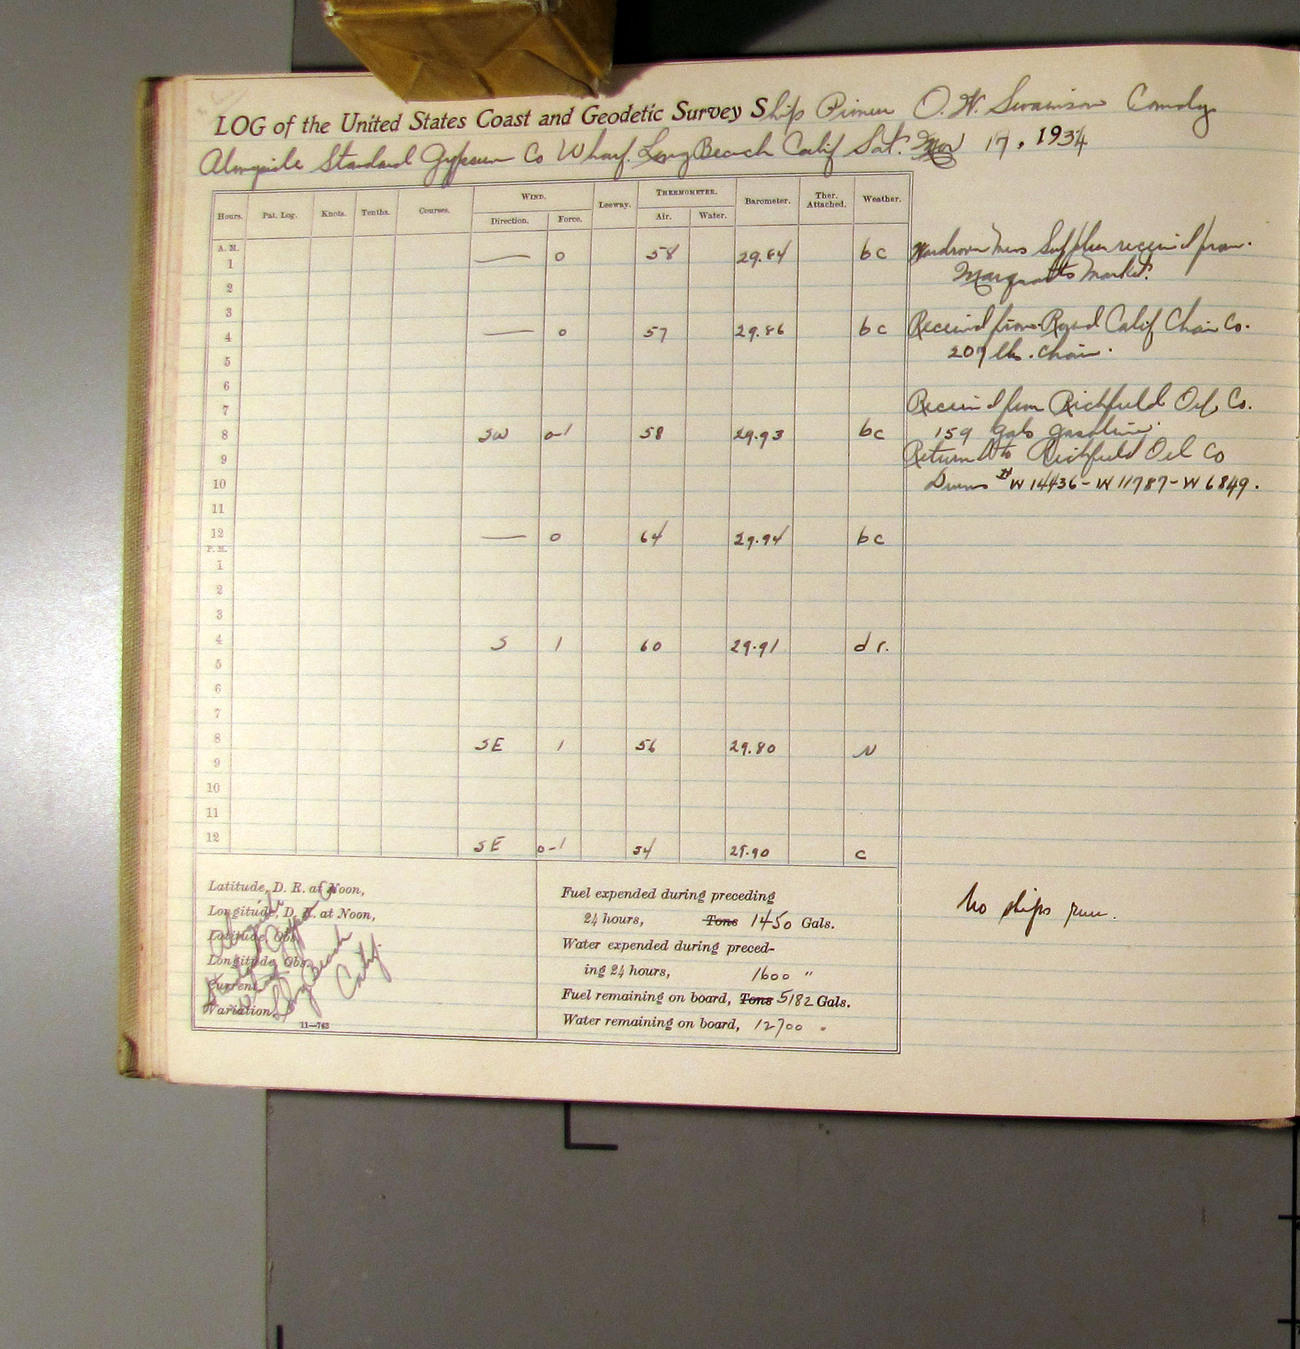 LOG of the United States Coast and Geodetic Survey Ship Pioneer O. W. Swainson Comdg
Alongside Standard Gypsum Co Wharf. Long Beach Calif Sat. Mar 17, 1934
Hours. Pat. Log. Knots. Tenths. Courses. WIND. Direction. Force. Leeway. THERMOMETER. Air. Water. Barometer. Ther. Attached. Weather.
A. M.
1 — 0 58 29.84 bc
2
3
4 — 0 57 29.86 bc
5
6
7
8 SW 0-1 58 29.93 bc
9
10
11
12 — 0 64 29.94 bc
P. M.
1
2
3
4 S 1 60 29.91 d r.
5
6
7
8 SE 1 56 29.80
9
10
11
12 SE 0-1 54 29.90 c
Wardroom Mess Supplies received from
Market.
Received from Calif Chain Co.
207 lbs. chain.
Received from Richfield Oil Co.
159 gals gasoline.
Returned to Richfield Oil Co
Drums # W 14436 - W 11787 - W 6849.
No ships run.
Latitude, D. R. at Noon,
Longitude, D. R. at Noon,
Latitude Obs.
Longitude Obs.
Current
Variation,
Alongside
Standard Gypsum Co
Wharf
Long Beach
Calif.
11—763
Fuel expended during preceding
24 hours, Tons 1450 Gals.
Water expended during preced-
ing 24 hours, 1600 "
Fuel remaining on board, Tons 5182 Gals.
Water remaining on board, 12700 "